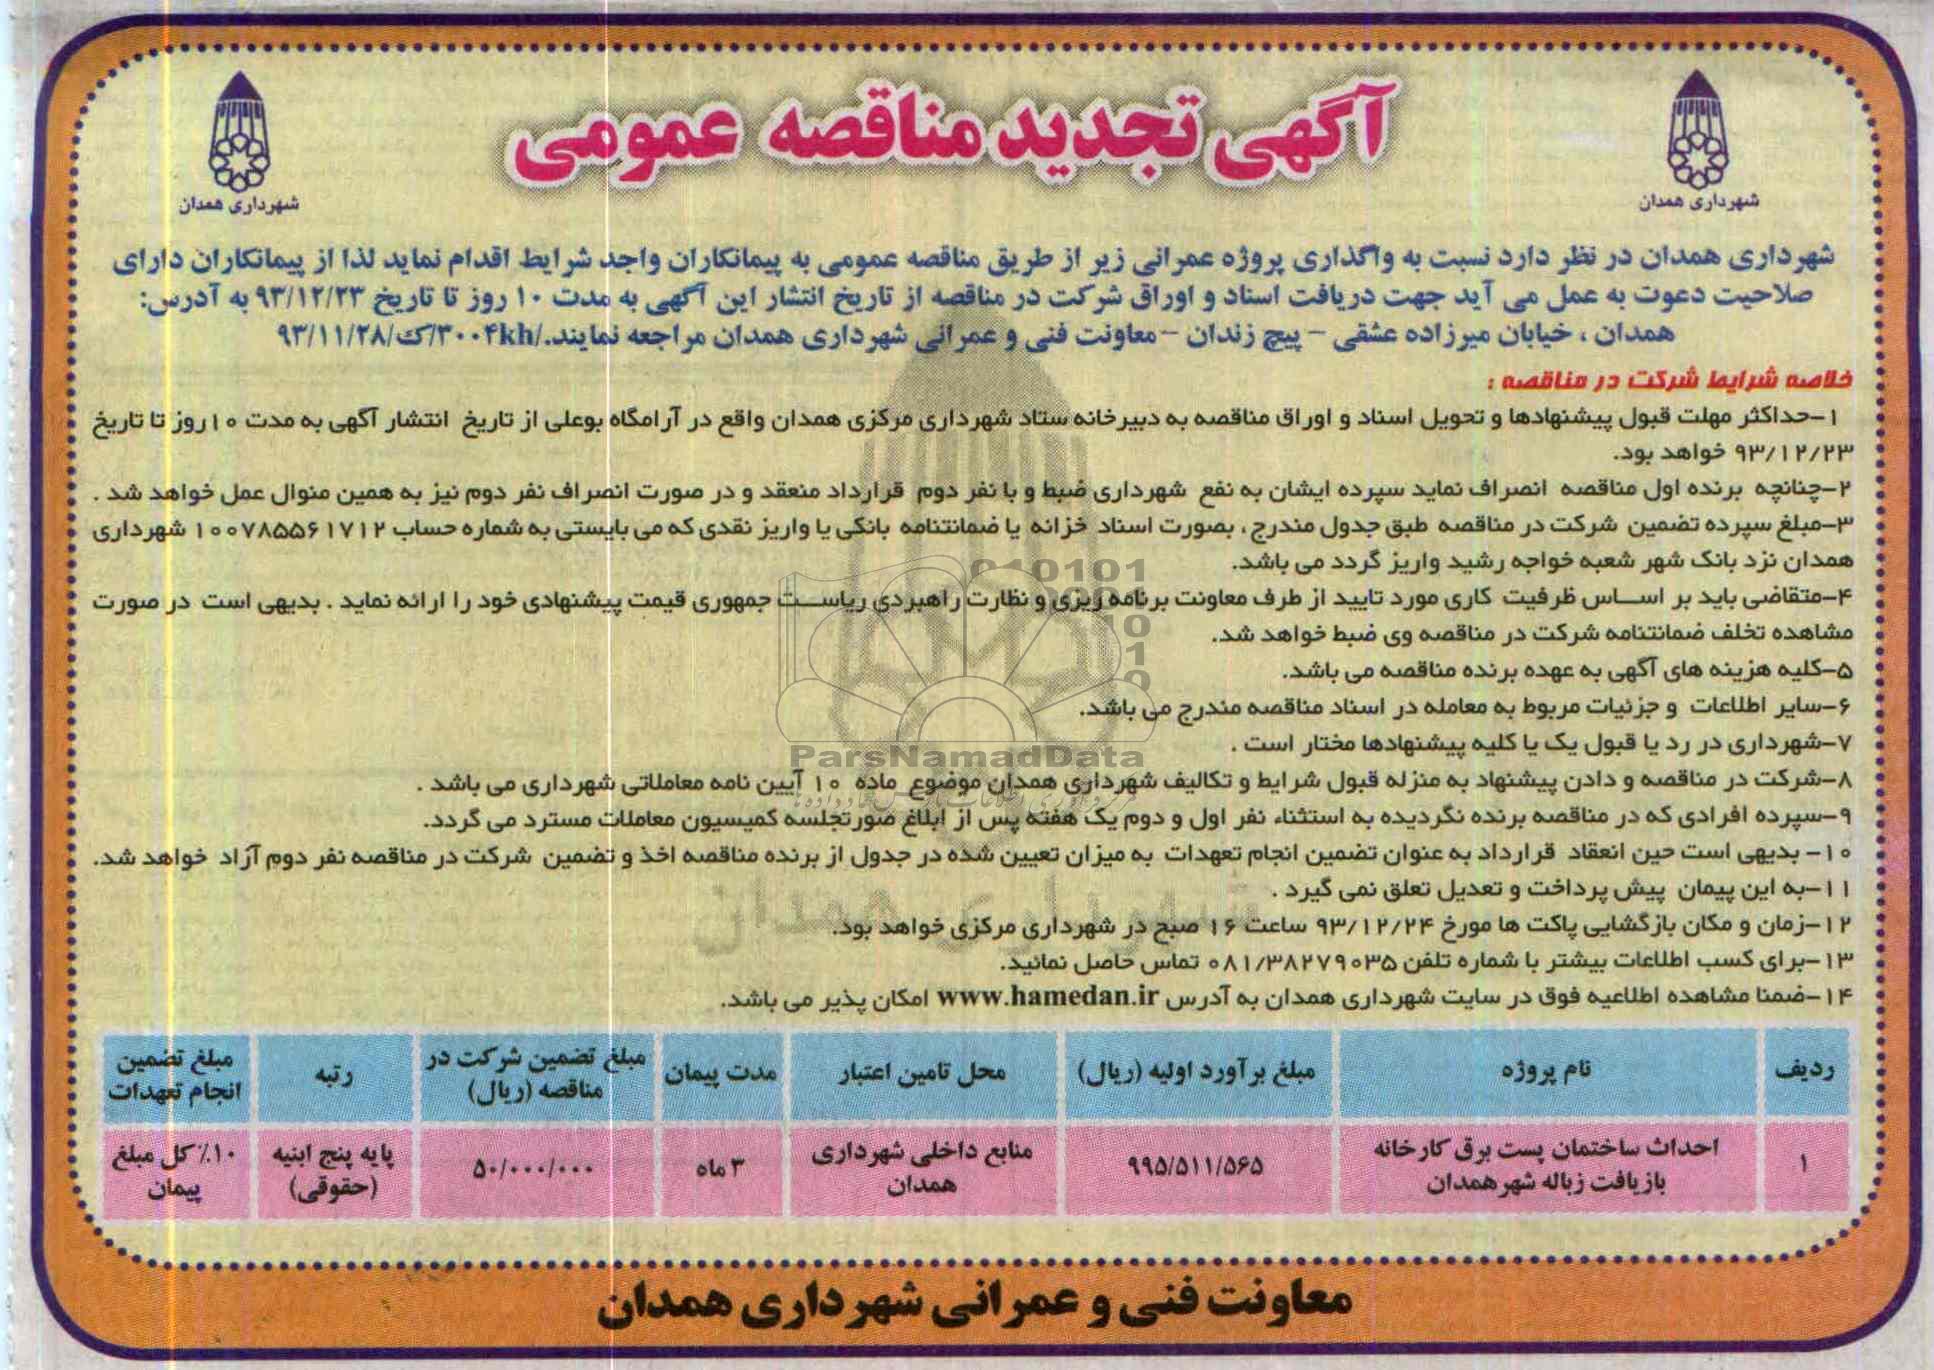 آگهی تجدید مناقصه عمومی
شهرداری همدان
شهرداری همدان
شهرداری همدان در نظر دارد نسبت به واگذاری پروژه عمرانی زیر از طریق مناقصه عمومی به پیمانکاران واجد شرایط اقدام نماید لذا از پیمانکاران دارای
صلاحیت دعوت به عمل می آید جهت دریافت اسناد و اوراق شرکت در مناقصه از تاریخ انتشار این آگهی به مدت ۱۰ روز تا تاریخ ۹۳/۱۲/۲۳ به آدرس:
همدان ، خیابان میرزاده عشقی - پیچ زندان - معاونت فنی و عمرانی شهرداری همدان مراجعه نمایند./۳۰۰۴kh/ک/۹۳/۱۱/۲۸
خلاصه شرایط شرکت در مناقصه :
۱-حداکثر مهلت قبول پیشنهادها و تحویل اسناد و اوراق مناقصه به دبیرخانه ستاد شهرداری مرکزی همدان واقع در آرامگاه بوعلی از تاریخ انتشار آگهی به مدت ۱۰روز تا تاریخ
۹۳/۱۲/۲۳ خواهد بود.
۲-چنانچه برنده اول مناقصه انصراف نماید سپرده ایشان به نفع شهرداری ضبط و با نفر دوم قرارداد منعقد و در صورت انصراف نفر دوم نیز به همین منوال عمل خواهد شد .
۳-مبلغ سپرده تضمین شرکت در مناقصه طبق جدول مندرج ، بصورت اسناد خزانه یا ضمانتنامه بانکی یا واریز نقدی که می بایستی به شماره حساب ۱۰۰۷۸۵۵۶۱۷۱۲ شهرداری
همدان نزد بانک شهر شعبه خواجه رشید واریز گردد می باشد.
۴-متقاضی باید بر اساس ظرفیت کاری مورد تایید از طرف معاونت برنامه ریزی و نظارت راهبردی ریاست جمهوری قیمت پیشنهادی خود را ارائه نماید . بدیهی است در صورت
مشاهده تخلف ضمانتنامه شرکت در مناقصه وی ضبط خواهد شد.
۵-کلیه هزینه های آگهی به عهده برنده مناقصه می باشد.
۶-سایر اطلاعات و جزئیات مربوط به معامله در اسناد مناقصه مندرج می باشد.
۷-شهرداری در رد یا قبول یک یا کلیه پیشنهادها مختار است .
۸-شرکت در مناقصه و دادن پیشنهاد به منزله قبول شرایط و تکالیف شهرداری همدان موضوع ماده ۱۰ آیین نامه معاملاتی شهرداری می باشد .
۹-سپرده افرادی که در مناقصه برنده نگردیده به استثناء نفر اول و دوم یک هفته پس از ابلاغ صورتجلسه کمیسیون معاملات مسترد می گردد.
۱۰- بدیهی است حین انعقاد قرارداد به عنوان تضمین انجام تعهدات به میزان تعیین شده در جدول از برنده مناقصه اخذ و تضمین شرکت در مناقصه نفر دوم آزاد خواهد شد.
۱۱-به این پیمان پیش پرداخت و تعدیل تعلق نمی گیرد .
۱۲-زمان و مکان بازگشایی پاکت ها مورخ ۹۳/۱۲/۲۴ ساعت ۱۶ صبح در شهرداری مرکزی خواهد بود.
۱۳-برای کسب اطلاعات بیشتر با شماره تلفن ۰۸۱/۳۸۲۷۹۰۳۵ تماس حاصل نمائید.
۱۴-ضمنا مشاهده اطلاعیه فوق در سایت شهرداری همدان به آدرس www.hamedan.ir امکان پذیر می باشد.
ParsNamadData
شهرداری همدان
ردیف نام پروژه مبلغ برآورد اولیه (ریال) محل تامین اعتبار مدت پیمان مبلغ تضمین شرکت در مناقصه (ریال) رتبه مبلغ تضمین انجام تعهدات
۱ احداث ساختمان پست برق کارخانه بازیافت زباله شهرهمدان ۹۹۵/۵۱۱/۵۶۵ منابع داخلی شهرداری همدان ۳ ماه ۵۰/۰۰۰/۰۰۰ پایه پنج ابنیه (حقوقی) ۱۰٪ کل مبلغ پیمان
معاونت فنی و عمرانی شهرداری همدان